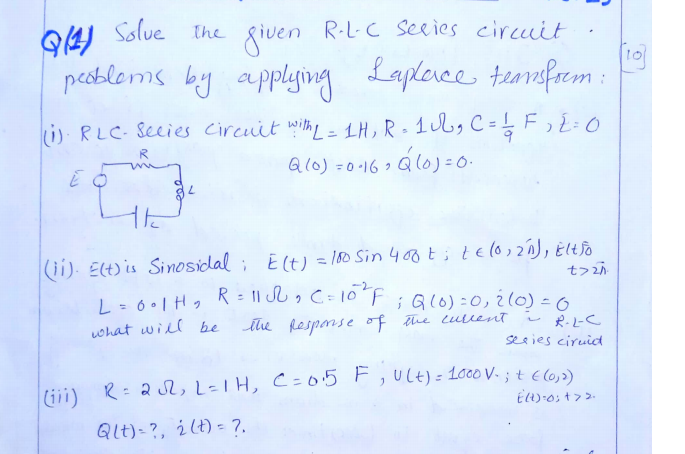 Q(1) Solve the given R-L-C Series circuit.
[10]
problems by applying Laplace transform:
(i). RLC-Series circuit with L = 1H, R = 1Ω, C = 1/9 F, E = 0
Q(0) = 0.16, Q'(0) = 0.
R
E
L
C
(ii). E(t) is Sinosidal; E(t) = 100 Sin 400 t; t ∈ (0, 2π), E(t)=0
t > 2π
L = 0.1 H, R = 11 Ω, C = 10⁻² F; Q(0) = 0, i(0) = 0
what will be the response of the current in R-L-C
series ciruid
(iii) R = 2 Ω, L = 1H, C = 0.5 F, U(t) = 1000 V-; t ∈ (0,2)
E(t)=0; t > 2.
Q(t) = ?, i(t) = ?.